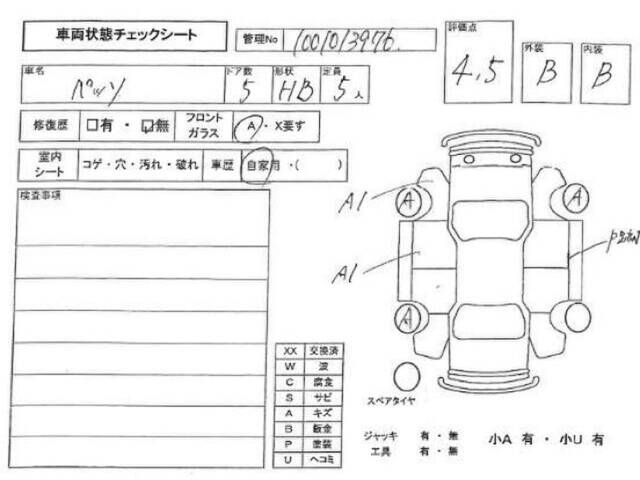 車両状態チェックシート
管理No 1001013976
評価点 4.5
外装 B
内装 B
車名 パッソ
ドア数 5
形状 HB
定員 5人
修復歴 □有・□無
フロントガラス A・X要す
室内シート コゲ・穴・汚れ・破れ
車歴 自家用・( )
検査事項
A1
A
A
A1
A
XX 交換済
W 波
C 腐食
S サビ
A キズ
B 鈑金
P 塗装
U ヘコミ
スペアタイヤ
ジャッキ 有・無
工具 有・無
小A 有・小U 有